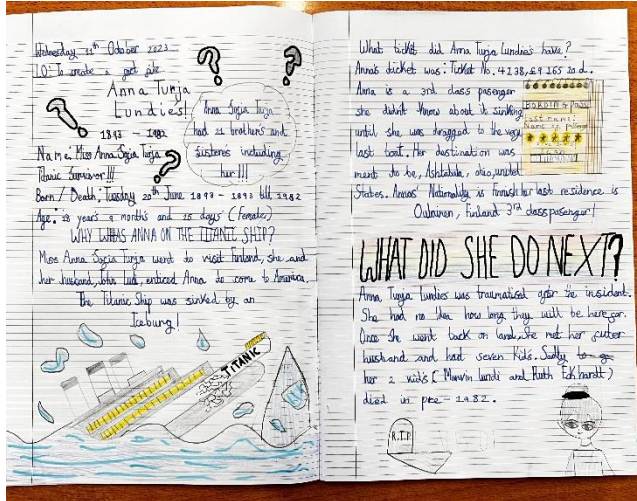 Wednesday 11th October 2023
LO: To create a fact file
Anna Turja
Lundies!
1893 - 1982
Anna Sofia Turja
had 21 brothers and
sisters including
her!!!
Name: Miss Anna Sofia Turja
Titanic Survivor!!!
Born / Death: Tuesday 20th June 1893 - 1893 till 1982
Age: 18 years 9 months and 25 days (female)
WHY WHAS ANNA ON THE TITANIC SHIP?
Miss Anna Sofia Turja went to visit Finland, she and
her husband, John Ludi, enticed Anna to come to America.
The Titanic Ship was sinked by an
Iceburg!
TITANIC
What ticket did Anna Turja Lundies have?
Anna's ticket was: Ticket No. 4138, £9 16s 10 d.
Anna is a 3rd class passenger
she didn't know about it sinking
until she was dragged to the very
last boat. Her destination was
ment to be, Ashtabula, Ohio, united
States. Annas' Nationality is Finnish her last residence is
Oulainen, Finland 3rd class passenger!
BORDING Pass
last name:
WHAT DID SHE DO NEXT?
Anna Turja Lundies was traumatised after the insident.
She had no idea how long they will be here for.
Once She went back on land, she met her futter
husband and had seven kids. Sadly
her 2 kid's (Marvin Lundi and Ruth Eckhardt)
died in pre - 1982.
R.I.P